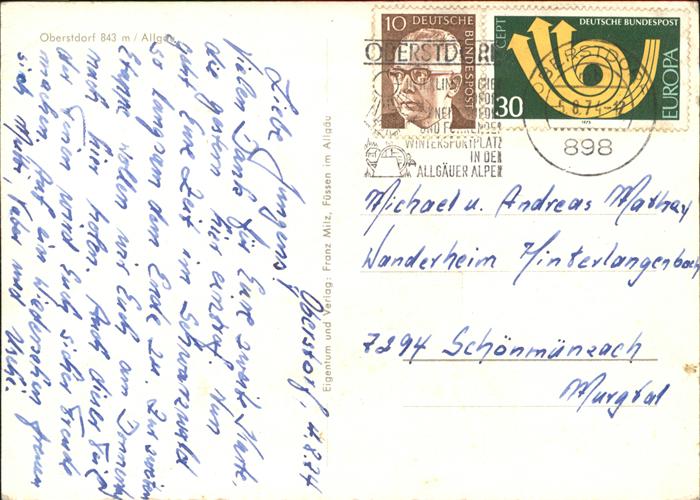 Oberstdorf 843 m / Allgäu
Oberstdorf, 4.8.74
Liebe Jungens!
Vielen Dank für Eure zweite Karte,
die gestern hier eintraf. Nun
geht Eure Zeit im Schwarzwald
so langsam dem Ende zu. Zur zweiten
Etappe wollen wir Euch am Donnerst.
nach hier holen. Auch dieser Teil
der Ferien wird Euch sicher Freude
machen. Auf ein Wiedersehen freuen
sich Mutti, Vater und
Eigentum und Verlag: Franz Milz, Füssen im Allgäu
10 DEUTSCHE BUNDESPOST
CEPT DEUTSCHE BUNDESPOST
30 EUROPA
1973
OBERSTDORF
UND
WINTERSPORTPLATZ
IN DEN
ALLGÄUER ALPEN
OBERSTDORF
898
Michael u. Andreas
Wanderheim Hinterlangenbach
7294 Schönmünzach
Murgtal